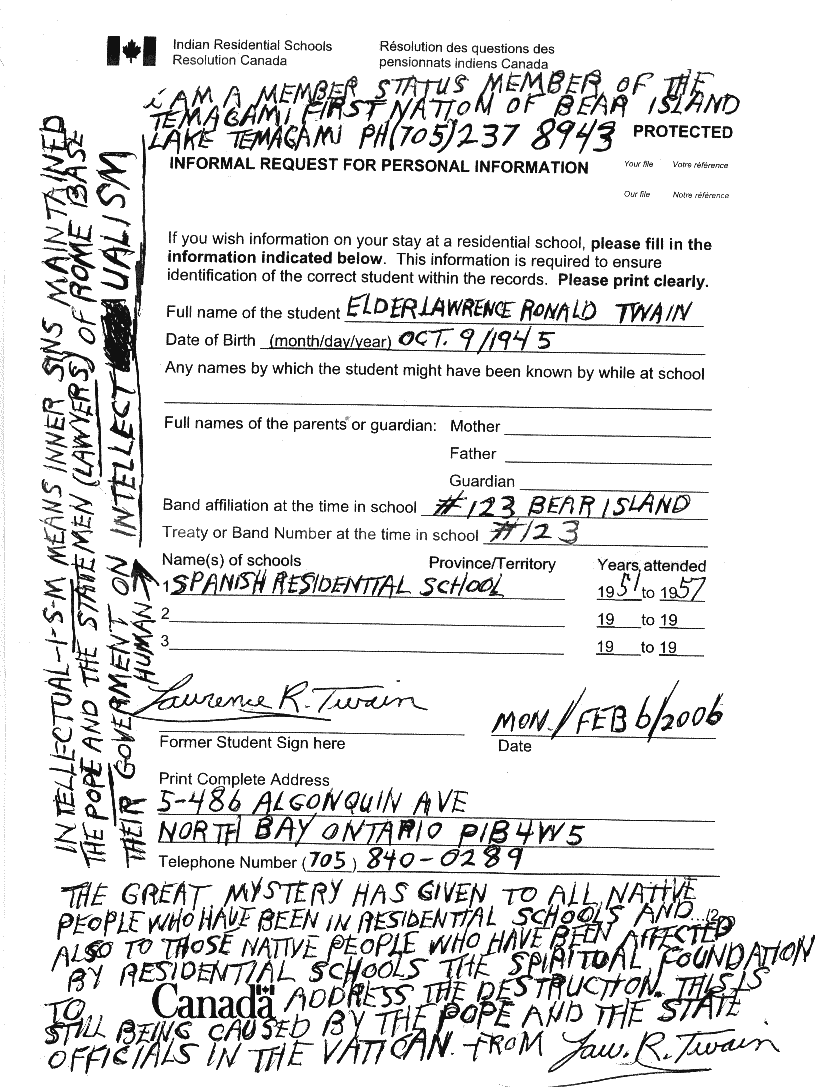 Indian Residential Schools Resolution Canada
Résolution des questions des pensionnats indiens Canada
i AM A MEMBER STATUS MEMBER OF THE
TEMAGAMI FIRST NATION OF BEAR ISLAND
LAKE TEMAGAMI PH(705)237 8943
PROTECTED
INFORMAL REQUEST FOR PERSONAL INFORMATION
Your file Votre référence
Our file Notre référence
If you wish information on your stay at a residential school, please fill in the
information indicated below. This information is required to ensure
identification of the correct student within the records. Please print clearly.
Full name of the student ELDER LAWRENCE RONALD TWAIN
Date of Birth (month/day/year) OCT. 9/1945
Any names by which the student might have been known by while at school
Full names of the parents or guardian: Mother
Father
Guardian
Band affiliation at the time in school #123 BEAR ISLAND
Treaty or Band Number at the time in school #123
Name(s) of schools Province/Territory Years attended
1 SPANISH RESIDENTIAL SCHOOL 1951 to 1957
2 19 to 19
3 19 to 19
Lawrence R. Twain
MON./FEB 6/2006
Former Student Sign here
Date
Print Complete Address
5-486 ALGONQUIN AVE
NORTH BAY ONTARIO P1B4W5
Telephone Number (705) 840-0289
THE GREAT MYSTERY HAS GIVEN TO ALL NATIVE
PEOPLE WHO HAVE BEEN IN RESIDENTIAL SCHOOLS AND...(2)
ALSO TO THOSE NATIVE PEOPLE WHO HAVE BEEN AFFECTED
BY RESIDENTIAL SCHOOLS THE SPIRITUAL FOUNDATION
TO ADDRESS THE DESTRUCTION. THIS IS
Canada
STILL BEING CAUSED BY THE POPE AND THE STATE
OFFICIALS IN THE VATICAN. FROM Law. R. Twain
INTELLECTUAL-I-S-M MEANS INNER SINS MAINTAINED
THE POPE AND THE STATEMEN (LAWYERS) OF ROME BASE
THEIR GOVERMENT ON INTELLECTUALISM
HUMAN